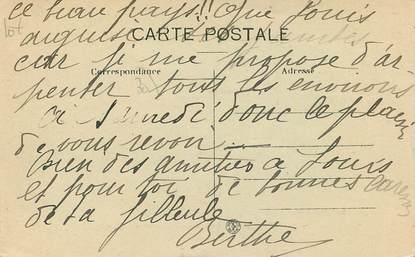 ce beau pays!! Que Louis
aiguise
CARTE POSTALE
car je me propose d'ar
Correspondance
Adresse
penter tous les environs
à Samedi donc le plaisir
de vous revoir
bien des amitiés à Louis
et pour toi de bonnes caresses
de ta filleule
Berthe